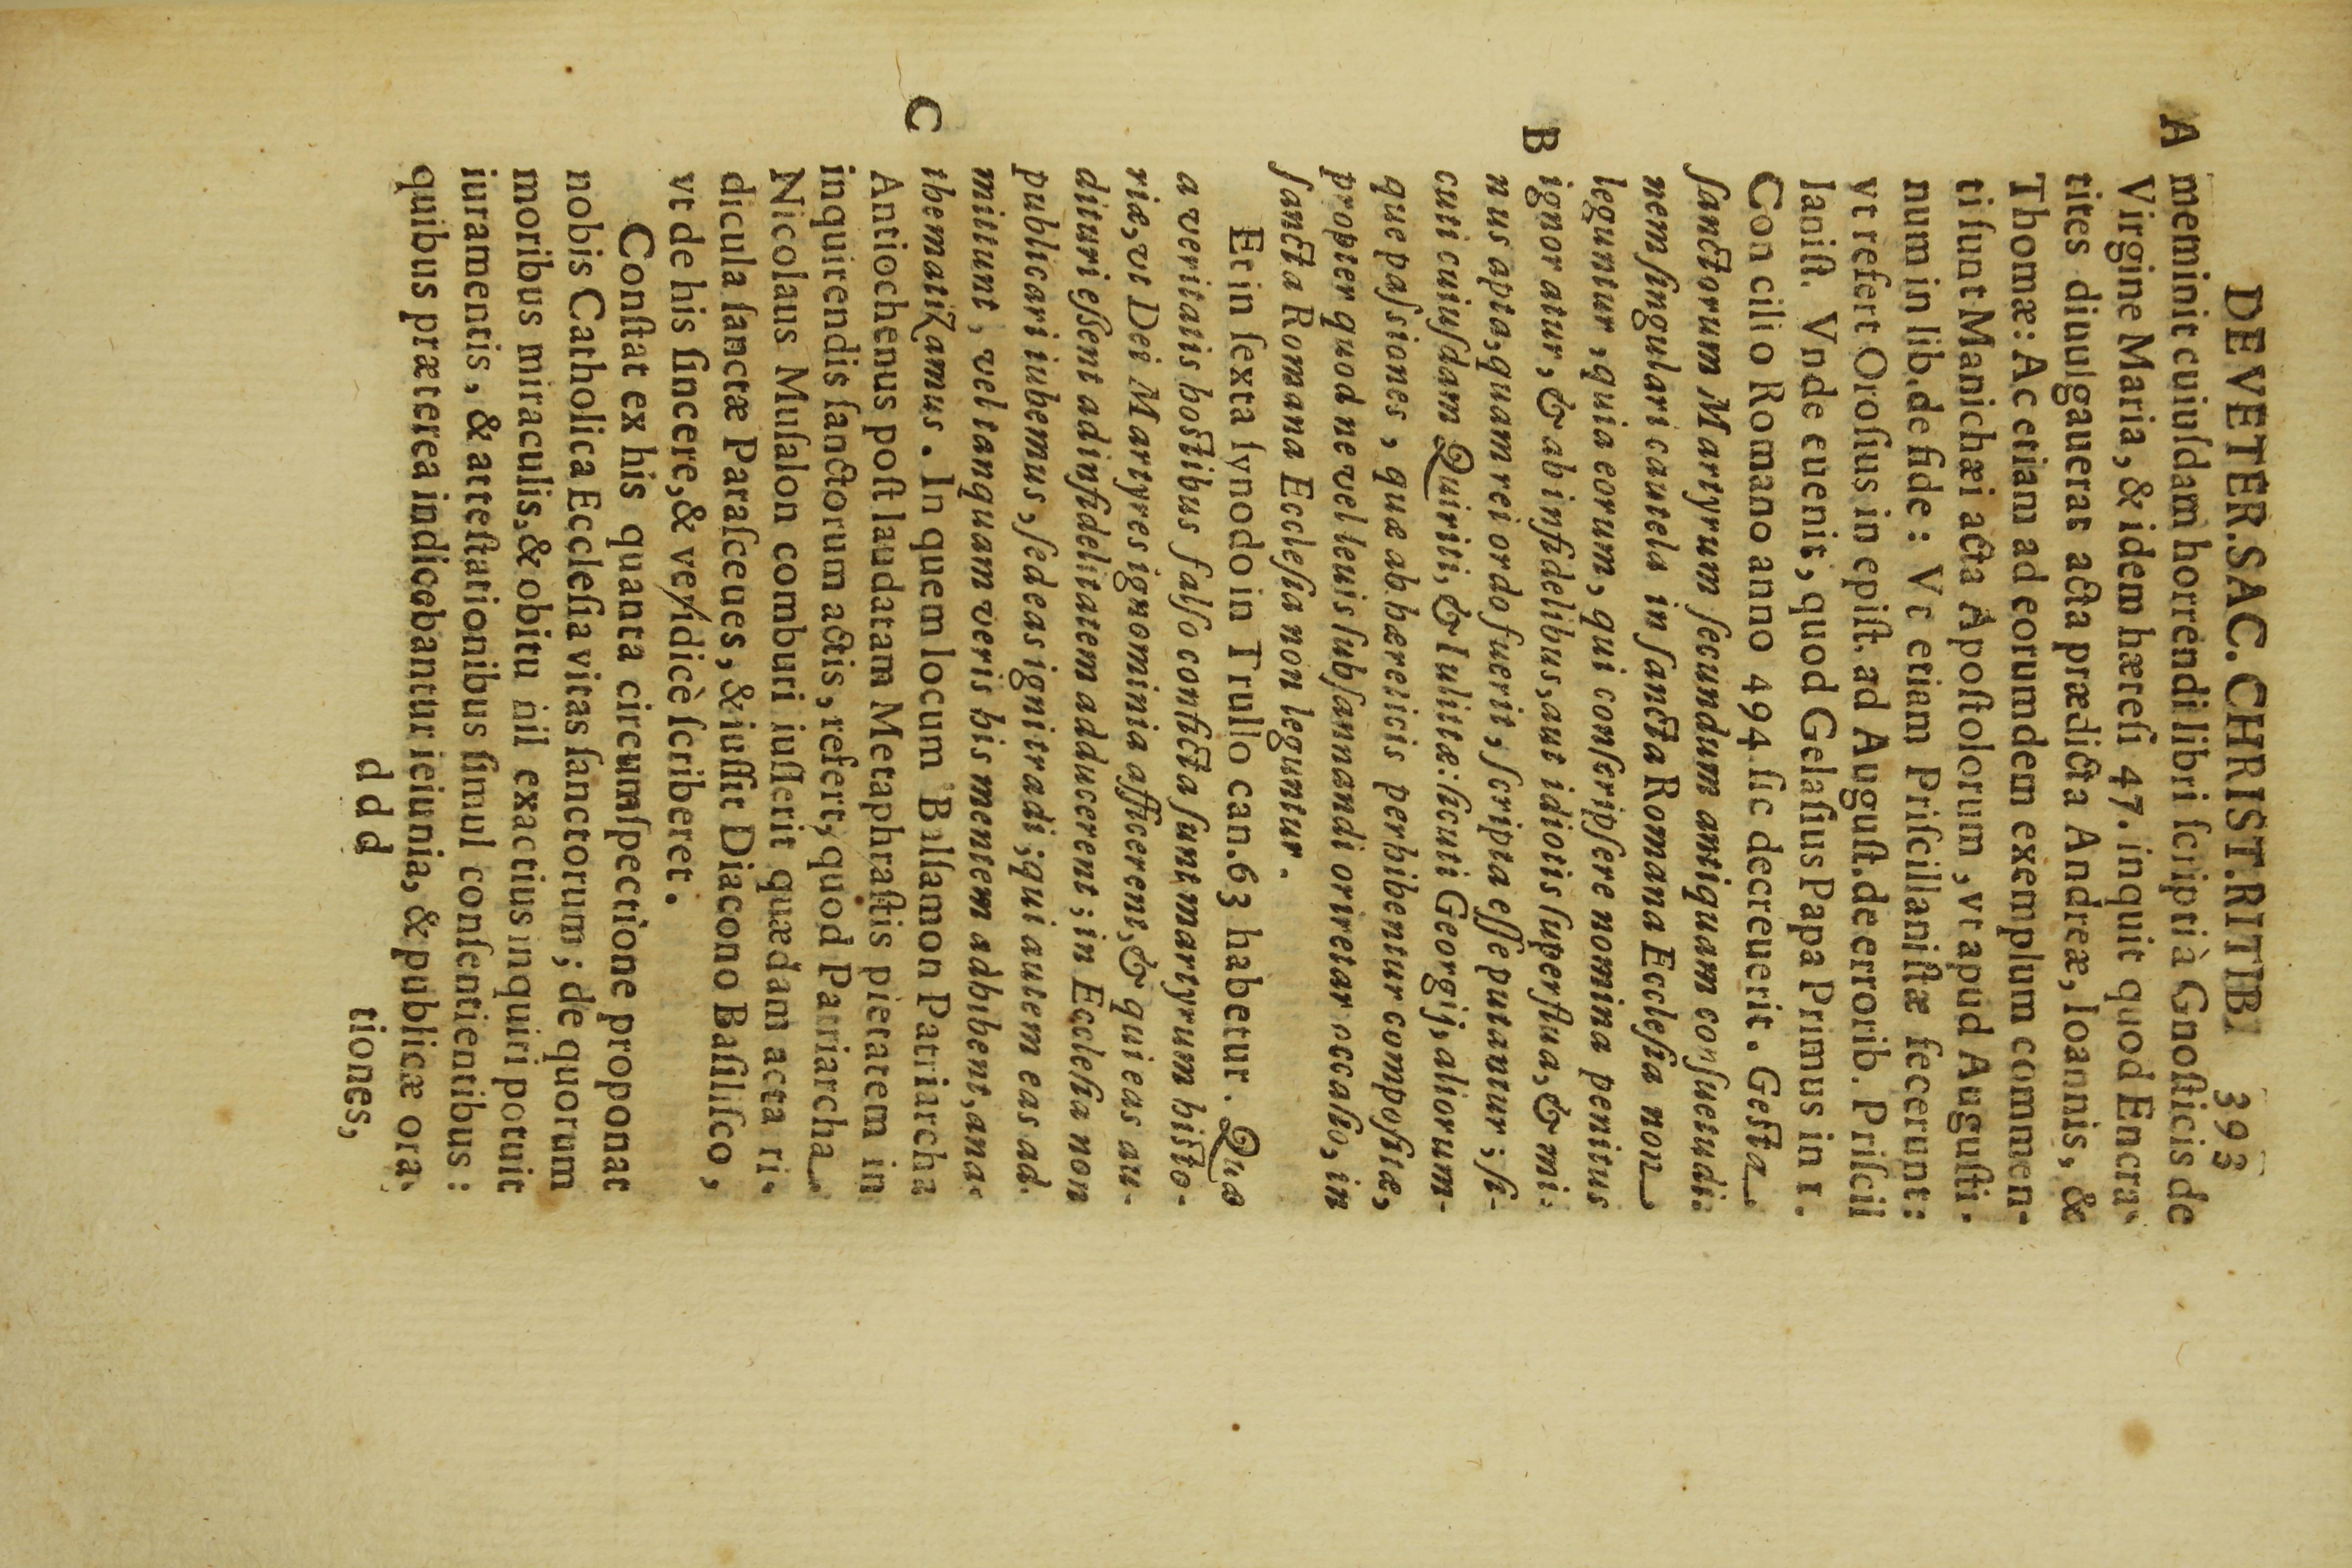 DE VETER. SAC. CHRIST. RITIB. 393
A meminit cuiuſdam horrendi libri ſcripti à Gnoſticis de
Virgine Maria, & idem hæreſi 47. inquit quod Encra-
tites diuulgauerat acta prædicta Andreæ, Ioannis, &
Thomæ: Ac etiam ad eorumdem exemplum commen-
ti ſunt Manichæi acta Apoſtolorum, vt apud Auguſti-
num in lib. de fide: Vt etiam Priſcillaniſtæ fecerunt:
vt refert Oroſius in epiſt. ad Auguſt. de errorib. Priſcil
laniſt. Vnde euenit, quod Gelaſius Papa Primus in 1.
Concilio Romano anno 494 ſic decreuerit. Geſta
ſanctorum Martyrum ſecundum antiquam conſuetudi-
nem ſingulari cautela in ſancta Romana Eccleſia non
leguntur, quia eorum, qui conſcripſere nomina penitus
B ignoratur, & ab infidelibus, aut idiotis ſuperflua, & mi-
nus apta, quam rei ordo fuerit, ſcripta eſſe putantur; ſi-
cuti cuiuſdam Quiriti, & Iulittæ: ſicuti Georgij, aliorum-
que paſsiones, quæ ab hæreticis perhibentur compoſitæ,
propter quod ne vel leuis ſubſannandi oriretar occaſio, in
ſancta Romana Eccleſia non leguntur.
Et in ſexta ſynodo in Trullo can. 63 habetur. Quæ
a veritatis hoſtibus falſo conficta ſunt martyrum hiſto-
riæ, vt Dei Martyres ignominia afficerent, & qui eas au-
dituri eſsent ad infidelitatem adducerent; in Eccleſia non
publicari iubemus, ſed eas igni tradi; qui autem eas ad-
mittunt, vel tanquam veris his mentem adhibent, ana-
C thematiZamus. In quem locum Balſamon Patriarcha
Antiochenus poſt laudatam Metaphraſtis pietatem in
inquirendis ſanctorum actis, refert, quod Patriarcha
Nicolaus Muſalon comburi iuſſerit quædam acta ri-
dicula ſanctæ Paraſceues, & iuſſit Diacono Baſiliſco,
vt de his ſincere, & veridicè ſcriberet.
Conſtat ex his quanta circumſpectione proponat
nobis Catholica Eccleſia vitas ſanctorum; de quorum
moribus miraculis, & obitu nil exactius inquiri potuit
iuramentis, & atteſtationibus ſimul conſentientibus:
quibus præterea indicebantur ieiunia, & publicæ ora-
d d d tiones,